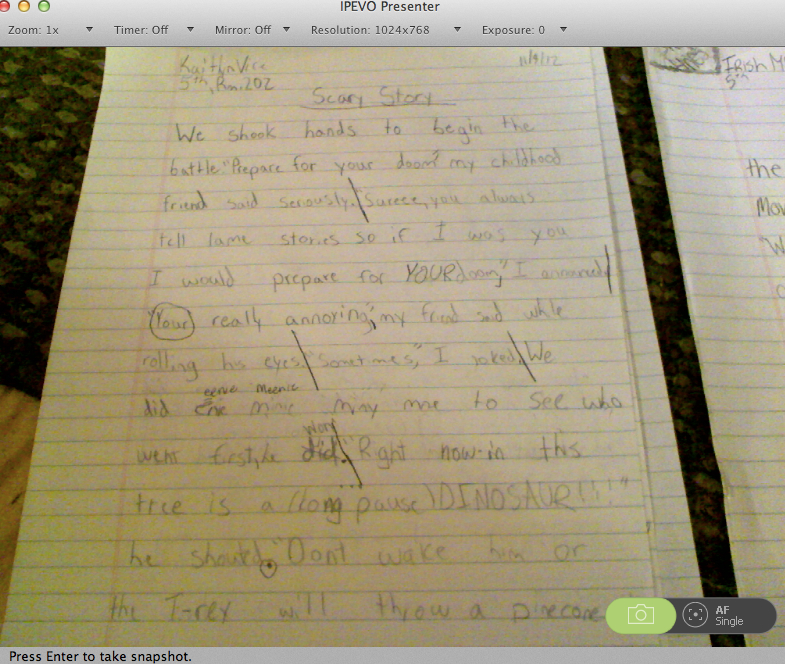 IPEVO Presenter
Zoom: 1x Timer: Off Mirror: Off Resolution: 1024x768 Exposure: 0
Kaitlyn Vice 11/9/12
5th, Rm. 202
Scary Story
We shook hands to begin the
battle. "Prepare for your doom" my childhood
friend said seriously. "Sureee, you always
tell lame stories so if I was you
I would prepare for YOUR doom," I answered
"Your really annoying", my friend said while
rolling his eyes. "Sometimes," I joked. We
eenie meenie
did mine miny moe to see who
won
went first, he did. "Right now in this
tree is a (long pause) DINOSAUR!!!"
he shouted. "Dont wake him or
the T-rex will throw a pinecone
IRISH M
5th
the
Mov
"W
AF
Single
Press Enter to take snapshot.